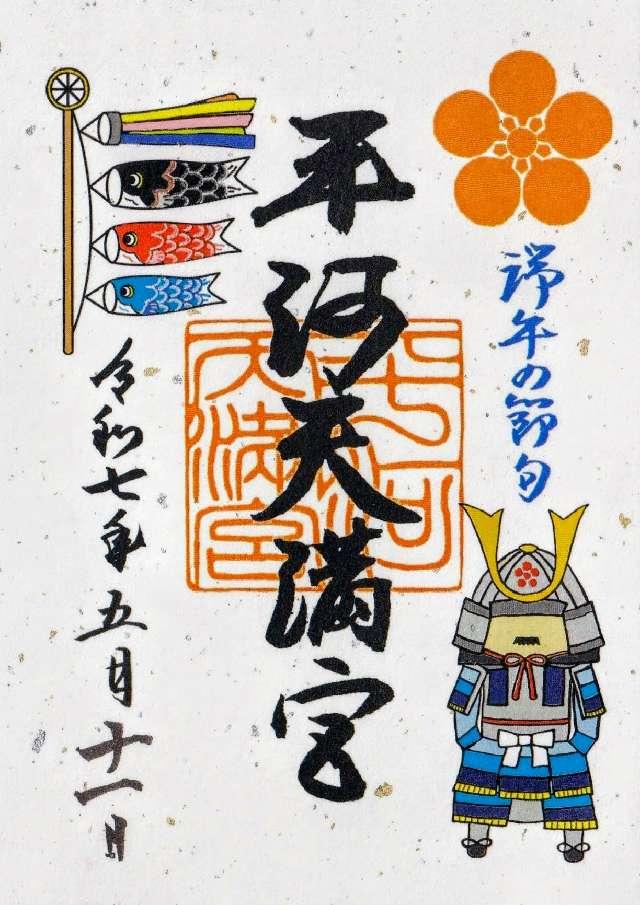 端午の節句
平河天満宮
平河天満宮
令和七年五月十一日